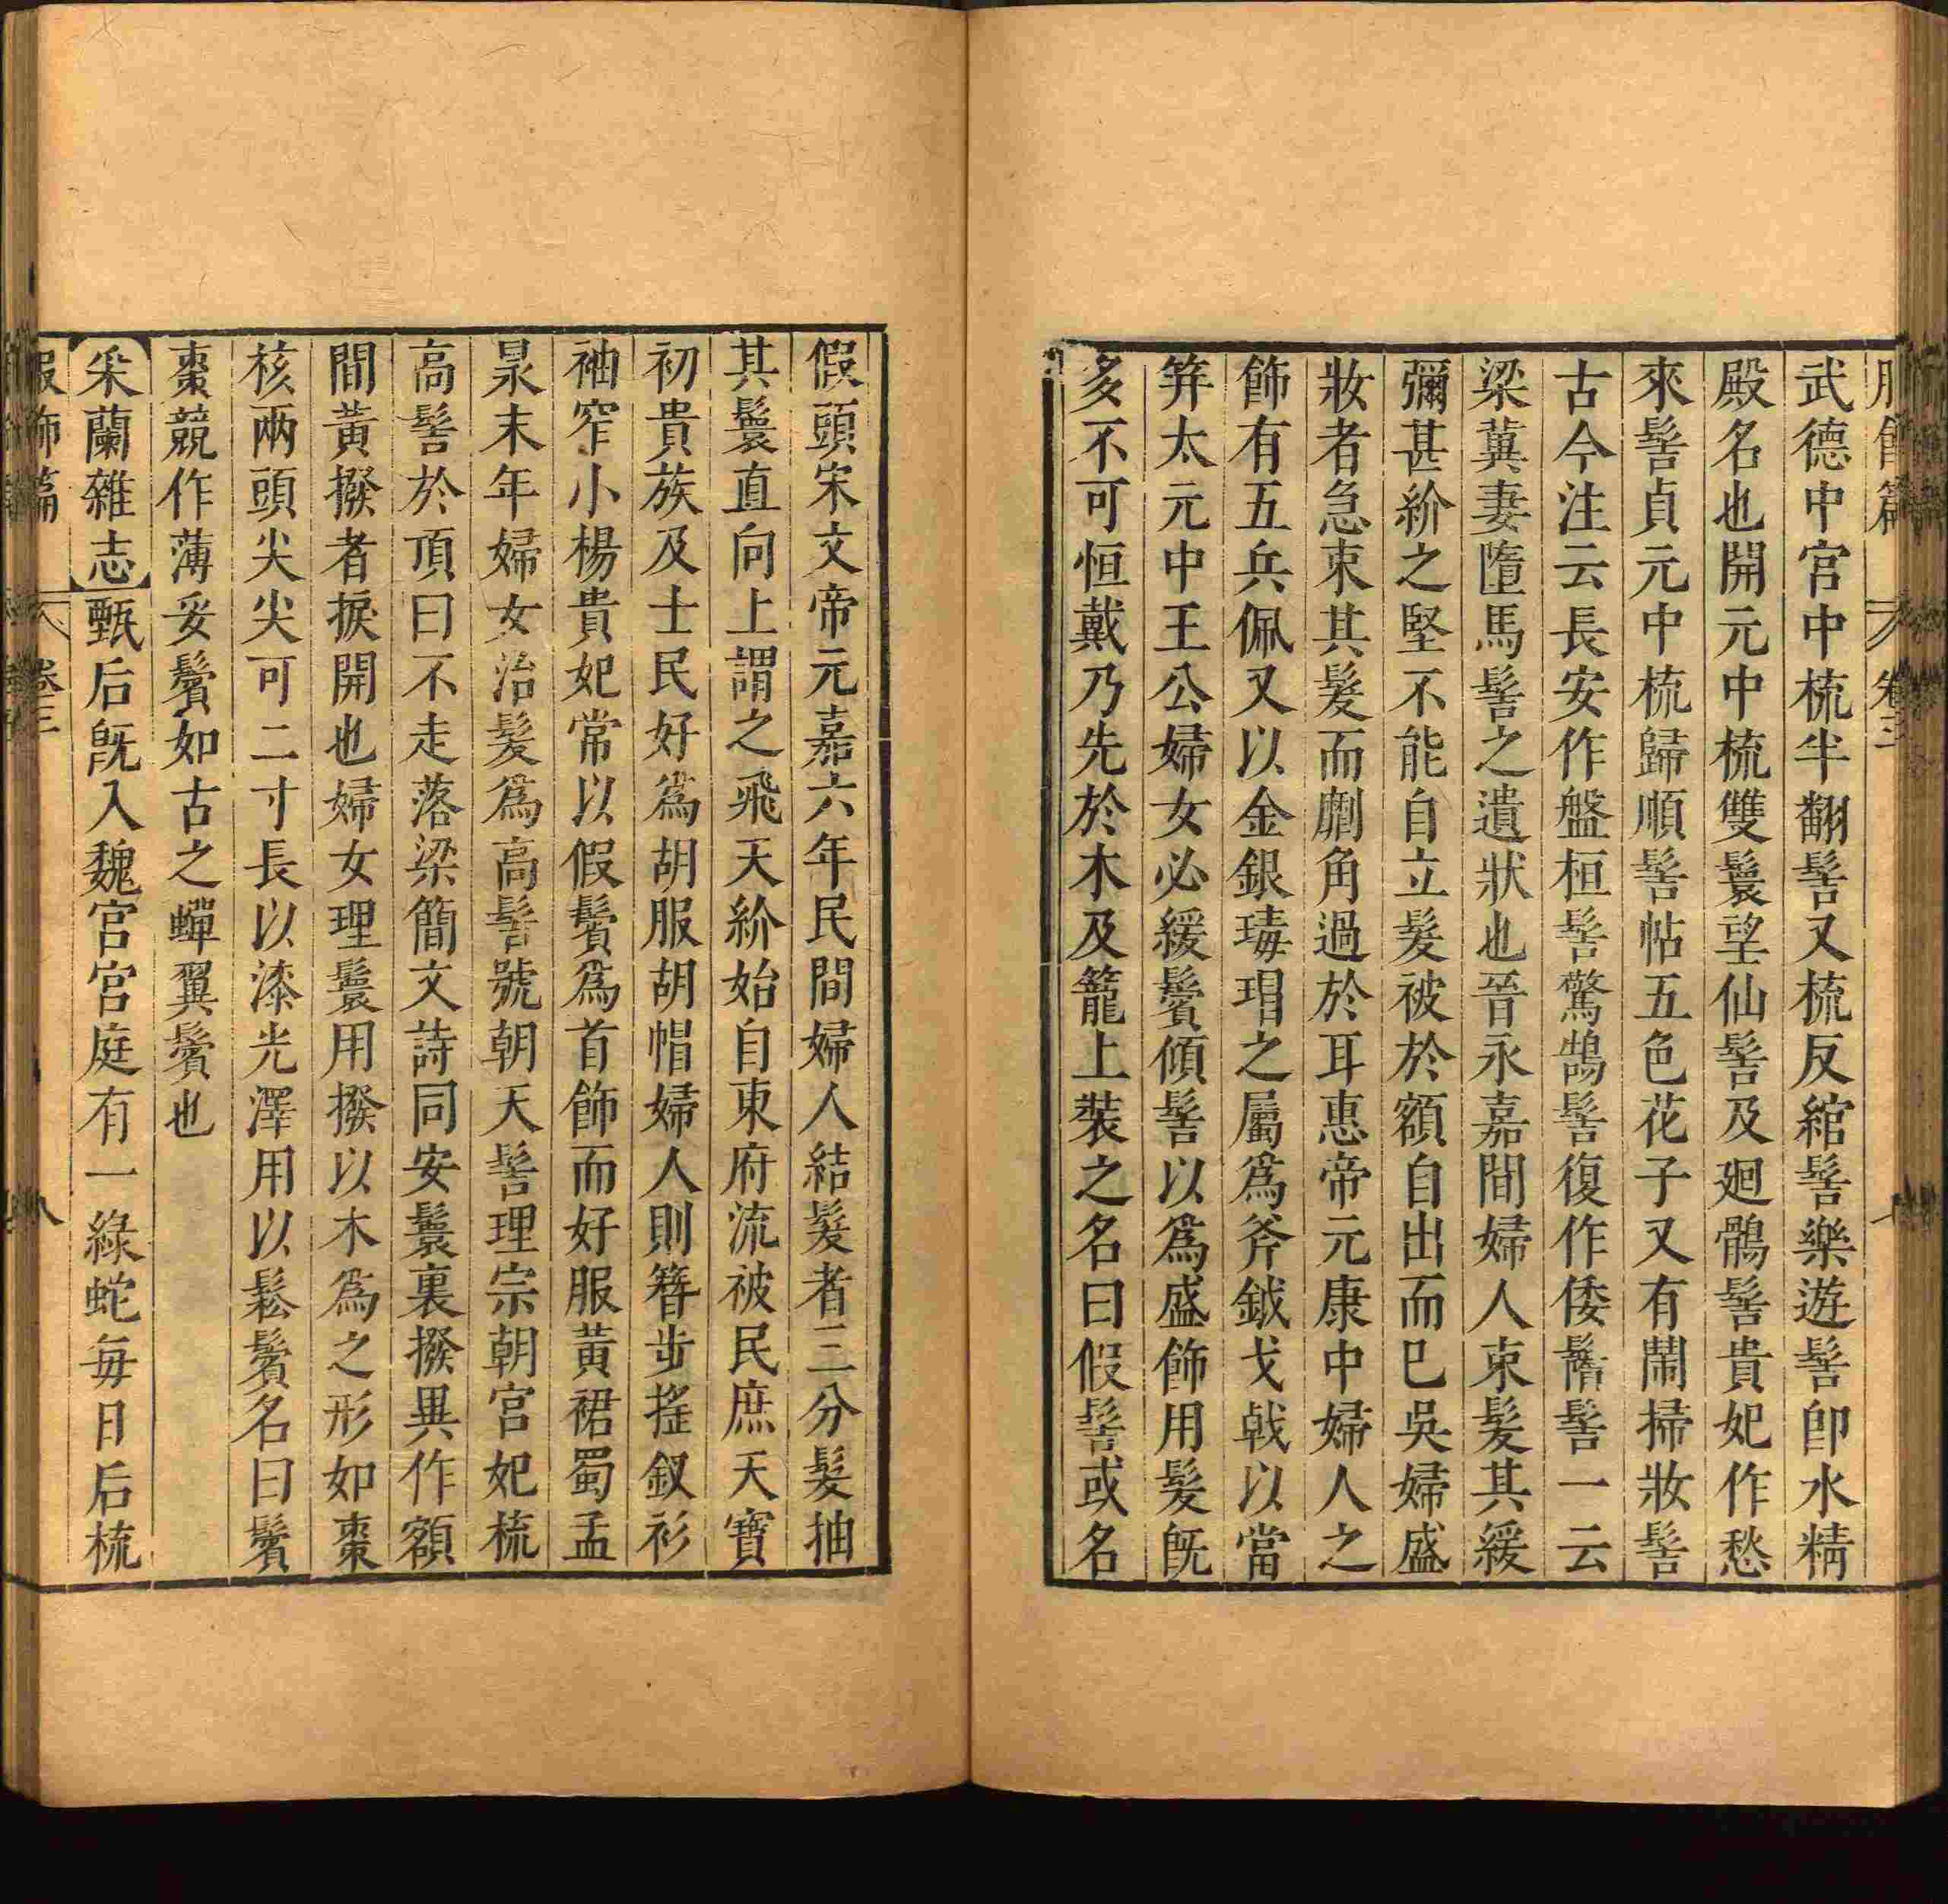 服飾篇 卷三 七
武德中宮中梳半翻髻又梳反綰髻樂遊髻卽水精
殿名也開元中梳雙鬟望仙髻及廻鶻髻貴妃作愁
來髻貞元中梳歸順髻帖五色花子又有鬧掃妝髻
古今注云長安作盤桓髻驚鵠髻復作倭鬌髻一云
梁冀妻墮馬髻之遺狀也晉永嘉間婦人束髮其緩
彌甚紒之堅不能自立髮被於額自出而已吳婦盛
妝者急束其髮而劘角過於耳惠帝元康中婦人之
飾有五兵佩又以金銀瑇瑁之屬爲斧鉞戈戟以當
笄太元中王公婦女必緩鬢傾髻以爲盛飾用髮旣
多不可恒戴乃先於木及籠上裝之名曰假髻或名
假頭宋文帝元嘉六年民間婦人結髮者三分髮抽
其鬟直向上謂之飛天紒始自東府流被民庶天寶
初貴族及士民好爲胡服胡帽婦人則簪步搖釵衫
袖窄小楊貴妃常以假鬢爲首飾而好服黃裙蜀孟
昶末年婦女治髮爲高髻號朝天髻理宗朝宮妃梳
高髻於頂曰不走落梁簡文詩同安鬟裏撥異作額
間黃撥者捩開也婦女理鬟用撥以木爲之形如棗
核兩頭尖尖可二寸長以漆光澤用以鬆鬢名曰鬢
棗競作薄妥鬢如古之蟬翼鬢也
采蘭雜志 甄后旣入魏宮宮庭有一綠蛇每日后梳
服飾篇 卷三 八